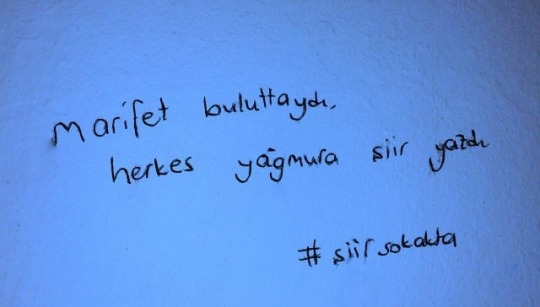 Marifet buluttaydı,
herkes yağmura şiir yazdı
#şiirsokakta